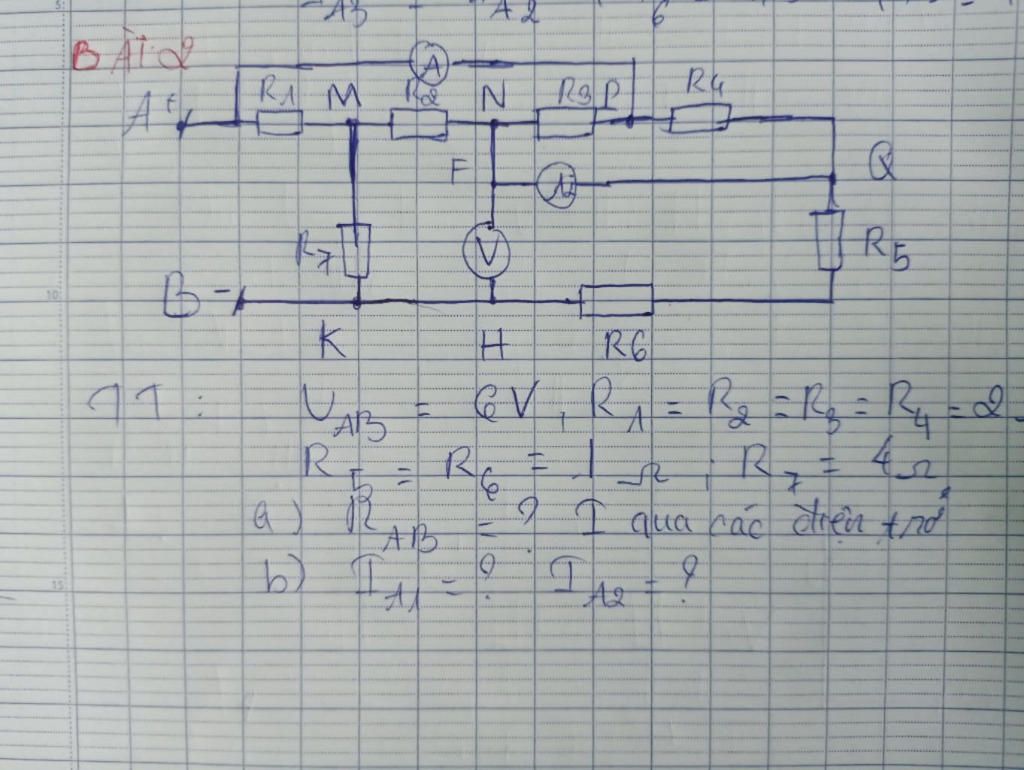 A3 A2 6
BÀI 2
A
R1 M R2 N R3 P R4
A +
F A2 Q
R7 V R5
B -
K H R6
TT : UAB = 6V, R1 = R2 = R3 = R4 = 2
R5 = R6 = 1Ω ; R7 = 4Ω
a) RAB = ? I qua các điện trở
b) IA1 = ? IA2 = ?